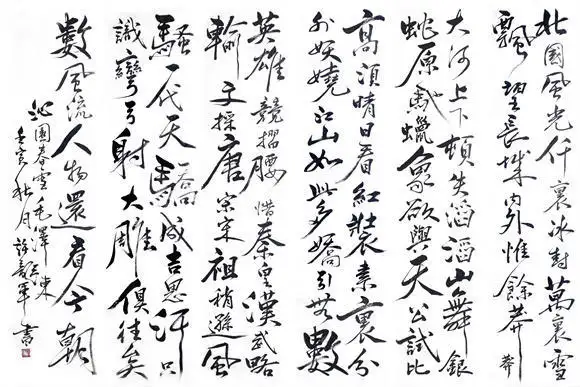 北國風光仟裏冰封萬裏雪
飄望長城内外惟餘莽莽
大河上下頓失滔滔山舞銀
蛇原馳蠟象欲與天公試比
高須晴日看紅裝素裏分
外妖嬈江山如此多嬌引无數
英雄競摺腰惜秦皇漢武略
輸文採唐宗宋祖稍遜風
騷一代天驕成吉思汗只
識彎弓射大雕俱往矣
數風流人物還看今朝
沁園春雪毛澤東
壬寅秋月許軍書